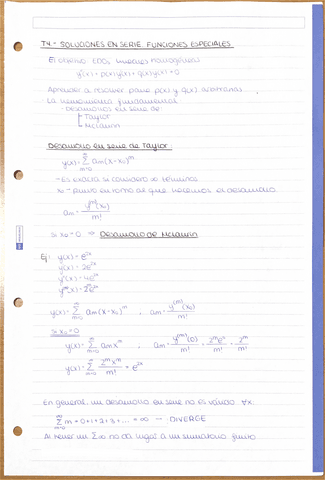 T4.- SOLUCIONES EN SERIE. FUNCIONES ESPECIALES
El objetivo EDOs lineales homogéneas
y''(x) + p(x)y'(x) + q(x)y(x) = 0
Aprender a resolver para p(x) y q(x) arbitrarias.
La herramienta fundamental
- desarrollos en serie de:
Taylor
McLaurin
Desarrollo en serie de Taylor
y(x) = ∑_{m=0}^{∞} a_m (x-x₀)^m
- Es exacta si considero ∞ términos
x₀ - punto en torno al que hacemos el desarrollo
a_m = y^{(m)}(x₀) / m!
Si x₀ = 0 ⇒ Desarrollo de McLaurin
Ej: y(x) = e^{2x}
y'(x) = 2e^{2x}
y''(x) = 4e^{2x}
y(x) = ∑_{m=0}^{∞} a_m (x-x₀)^m , a_m = y^{(m)}(x₀) / m!
Si x₀=0
y(x) = ∑_{m=0}^{∞} a_m x^m , a_m = y^{(m)}(0) / m! = 2^m e^0 / m! = 2^m / m!
y(x) = ∑_{m=0}^{∞} 2^m x^m / m! = e^{2x}
En general, un desarrollo en serie no es válido ∀x:
∑_{m=0}^{∞} m = 0+1+2+3+... = ∞ → DIVERGE
Al tener un ∑∞ no da lugar a un sumatorio finito